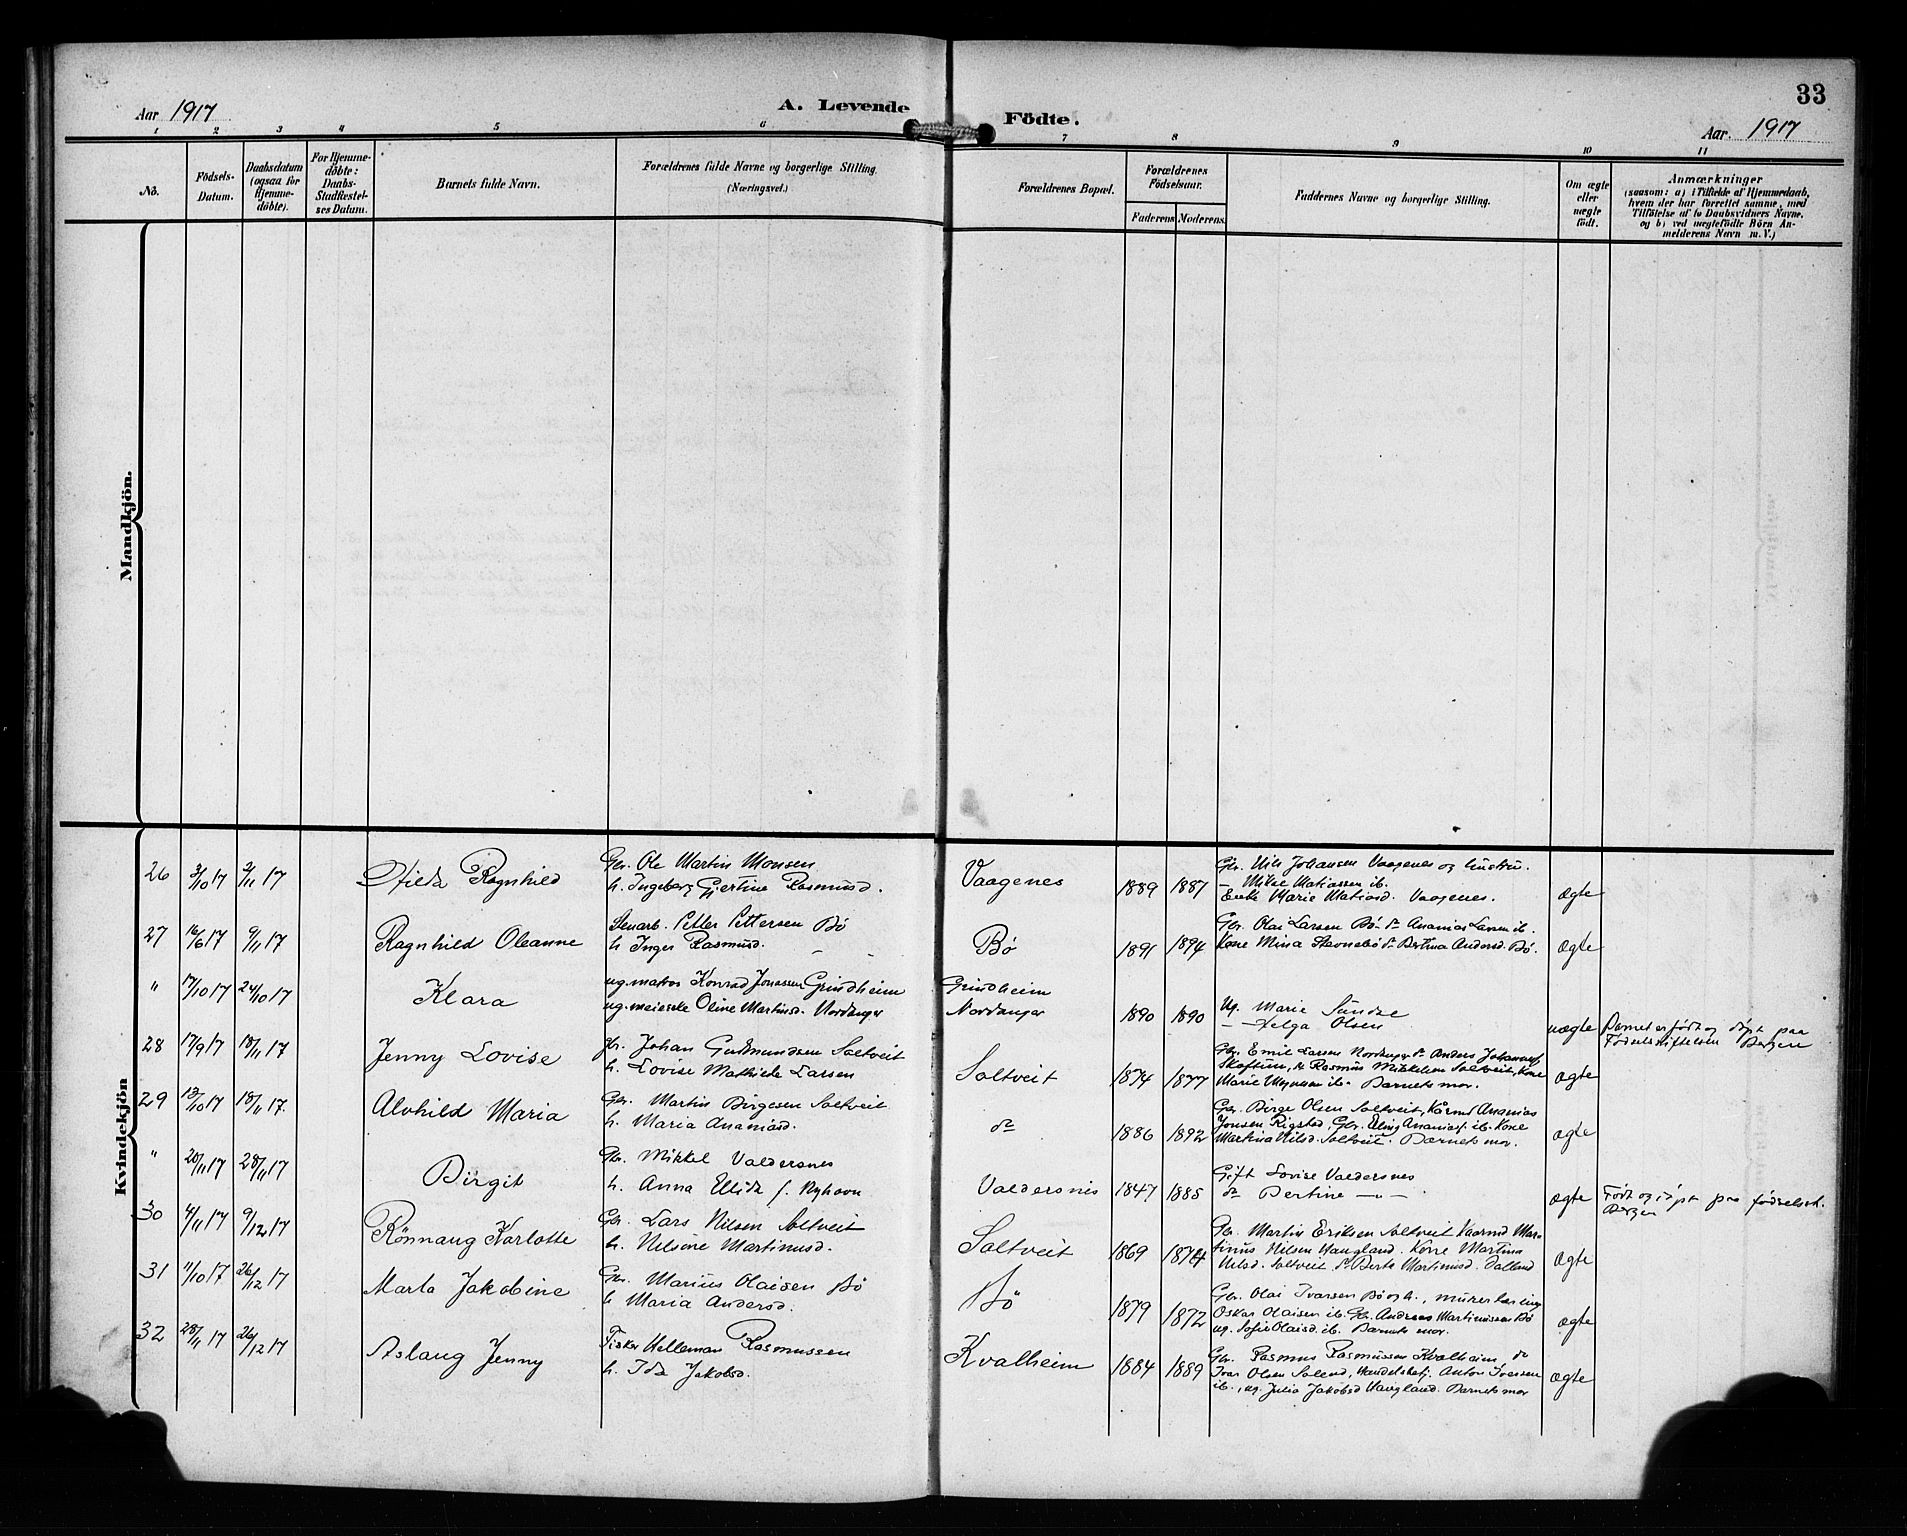 33
Aar 1917
A. Levende
Födte.
Aar. 1917
1 2 3 4 5 6 7 8 9 10 11
No.
Födsels-
Datum.
Daabsdatum
(ogsaa for
Hjemme-
döbte).
For Hjemme-
döbte:
Daabs-
Stadfæstel-
ses Datum.
Barnets fulde Navn.
Forældrenes fulde Navne og borgerlige Stilling.
(Næringsvei.)
Forældrenes Bopæl.
Forældrenes
Födselsaar.
Faderens Moderens.
Faddernes Navne og borgerlige Stilling.
Om ægte
eller
uægte
født.
Anmærkninger
(saasom: a) i Tilfælde af Hjemmedaab,
hvem der har forrettet samme, med
Tilföielse af to Daabsvidners Navne,
og b) ved uægtefödte Börn An-
melderens Navn m. V.)
Mandkjön.
Kvindekjön
26 3/10 17 3/11 17
Hilda Ragnhild
Gbr. Ole Martin Monsen
h. Ingeborg Gjertine Rasmusd.
Vaagenes
1889 1887
Gbr. Nils Johansen Vaagenes og hustru.
– Mikal Matiassen ib.
Enke Marie Matiasd. Vaagenes.
ægte
27 16/6 17 9/11 17
Ragnhild Oleanne
Stenarb. Petter Pettersen Bö
h Inger Rasmusd. – –
Bö
1891 1894
Gbr. Olai Larsen Bö do Ananias Larsen ib.
Kone Mina Stavnebö do Bertina Andersd. Bö.
ægte
" 17/10 17 24/10 17
Klara
ug. matros Konrad Jonassen Grindheim
ug. meierske Oline Martinsd. Nordanger
Grindheim
Nordanger
1890 1890
Ug. Marie Sundal
– Helga Olsen
uægte
Barnet er født og døpt paa
Fødselsstiftelsen Bergen
28 17/9 17 18/11 17
Jenny Lovise
Gbr. Johan Gudmundsen Soltveit
h. Lovise Mathilde Larsen
Soltveit
1874 1877
Gbr. Emil Larsen Nordanger do Anders Johannesf.
Skoftun, do Rasmus Mikkelsen Soltveit, Kone
Marie Magnusen ib. Barnets mor.
ægte
29 13/10 17 18/11 17.
Alvhild Maria
Gbr. Martin Birgesen Soltveit
h. Maria Ananiasd.
do
1886 1892
Gbr. Birge Olsen Soltveit, Kaarmd Ananias
Jonsen Rigstad, Gbr. Elling Ananiasf. ib. Kone
Martina Nilsd. Soltveit. Barnets mor.
ægte
" 20/11 17 28/11 17
Birgit
Gbr. Mikkel Valdersnes
h. Anna Elida f. Nyhavn
Valdersnes
1847 1885
Gift Lovise Valdersnes
do Bertine – " –
ægte
Født og døpt paa fødselsst.
Bergen
30 4/11 17 9/12 17
Rönnaug Karlotte
Gbr. Lars Nilsen Soltveit
h. Nilsine Martinusd.
Soltveit
1869 1874
Gbr. Martin Eriksen Soltveit Kaarmd Mar-
tinus Nilsen Haugland. Kone Martina
Nilsd. Soltveit do Berta Martinusd. Dalland
ægte
31 11/10 17 26/12 17
Marta Jakobine
Gbr. Marius Olaisen Bö
h Maria Andersd.
Bö
1879 1872
Gbr. Olai Ivarsen Bö, murerlærling
Oskar Olaisen ib. Gbr. Andreas Martinussen Bö
ug. Sofie Olaisd. ib. Barnets mor.
ægte
32 28/11 17 26/12 17
Aslaug Jenny
Fisker Helleman Rasmussen
h. Ida Jakobsd.
Kvalheim
1884 1889
Gbr. Rasmus Rasmussen Kvalheim do
Ivar Olsen Solend, Handelsbetj. Anton Iversen
ib., ug. Julia Jakobsd Haugland. Barnets mor
ægte